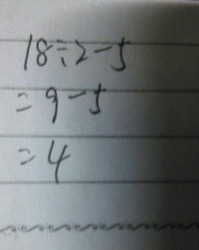 18÷2-5
=9-5
=4